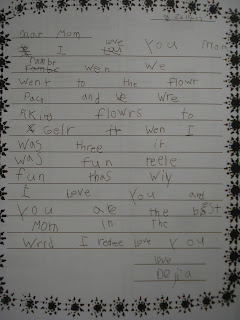 Dear Mom
I love You mom
wen We
Went to the flowr
Pacy and We Wre
Pking flowrs to
Gelr Wen I
Was three it
was fun reele
fun thas Wiy
I love You and
You are the best
Mom in the
Wrrd I redee love You
love
Delia